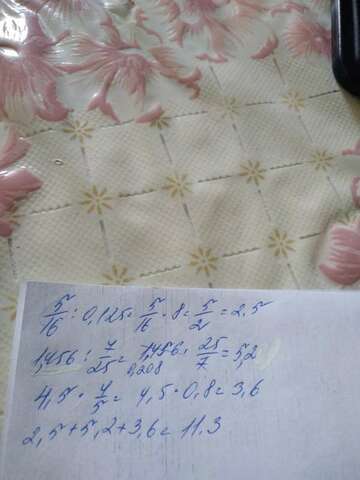 5/16 : 0,125 = 5/16 · 8 = 5/2 = 2,5
1,456 : 7/25 = 1,456 · 25/7 = 5,2
0,208
4,5 · 4/5 = 4,5 · 0,8 = 3,6
2,5 + 5,2 + 3,6 = 11.3